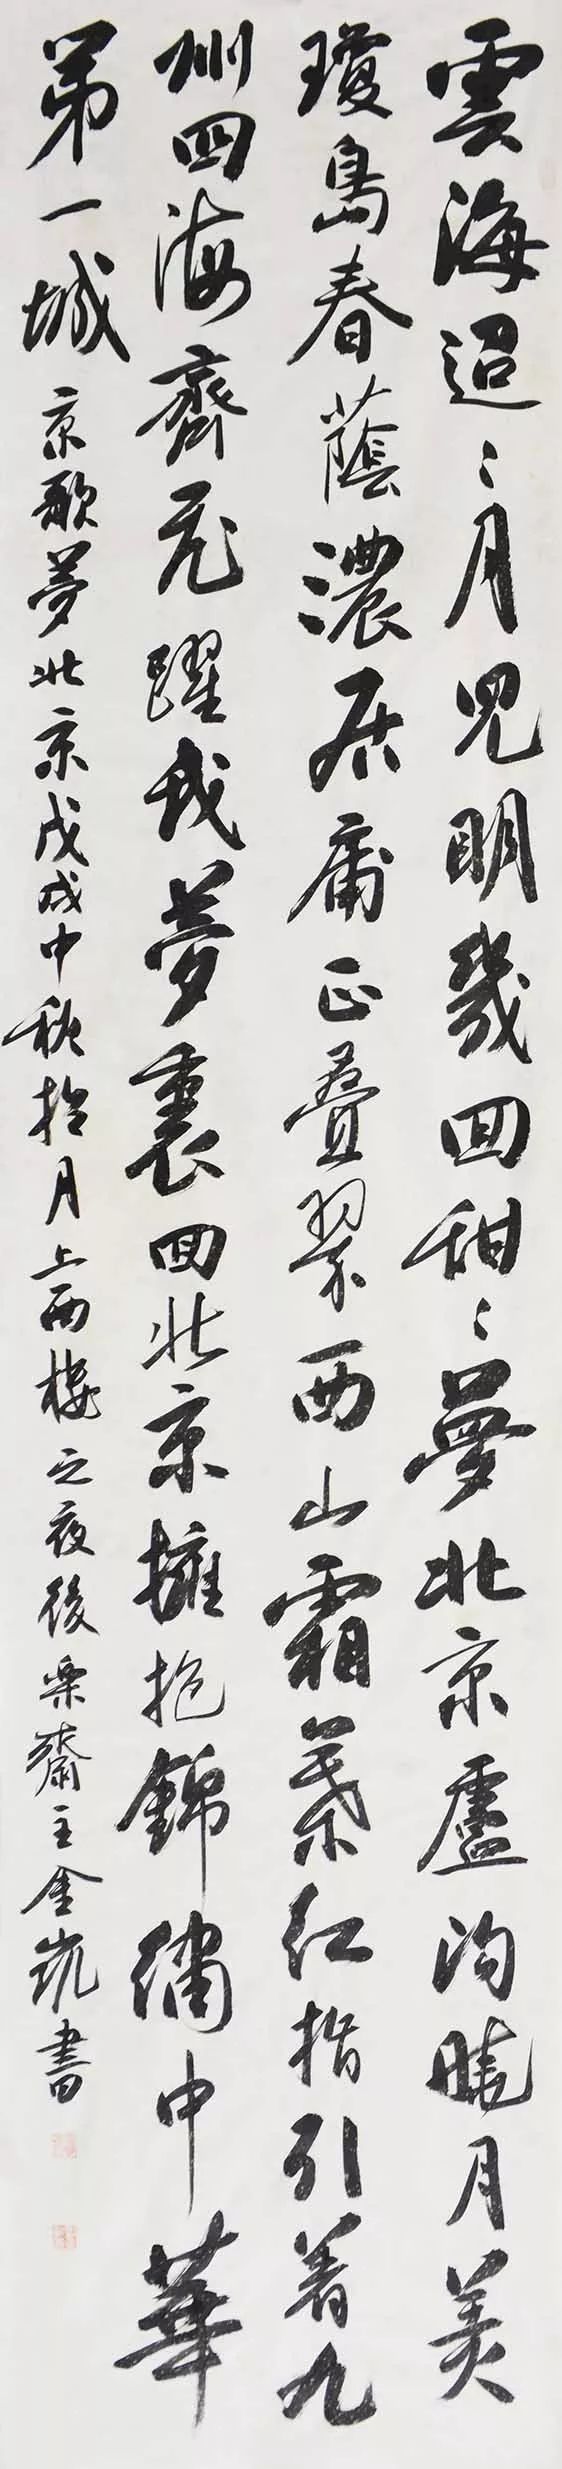 雲海迢〻月兒明幾回甜〻夢北京盧沟曉月美
瓊島春蔭濃居庸正疊翠西山霜葉红指引着九
州四海齊飛躍我夢裏回北京擁抱錦繡中華
第一城
京歌夢北京戊戌中秋拾月上西樓之夜後樂齋主金凯書